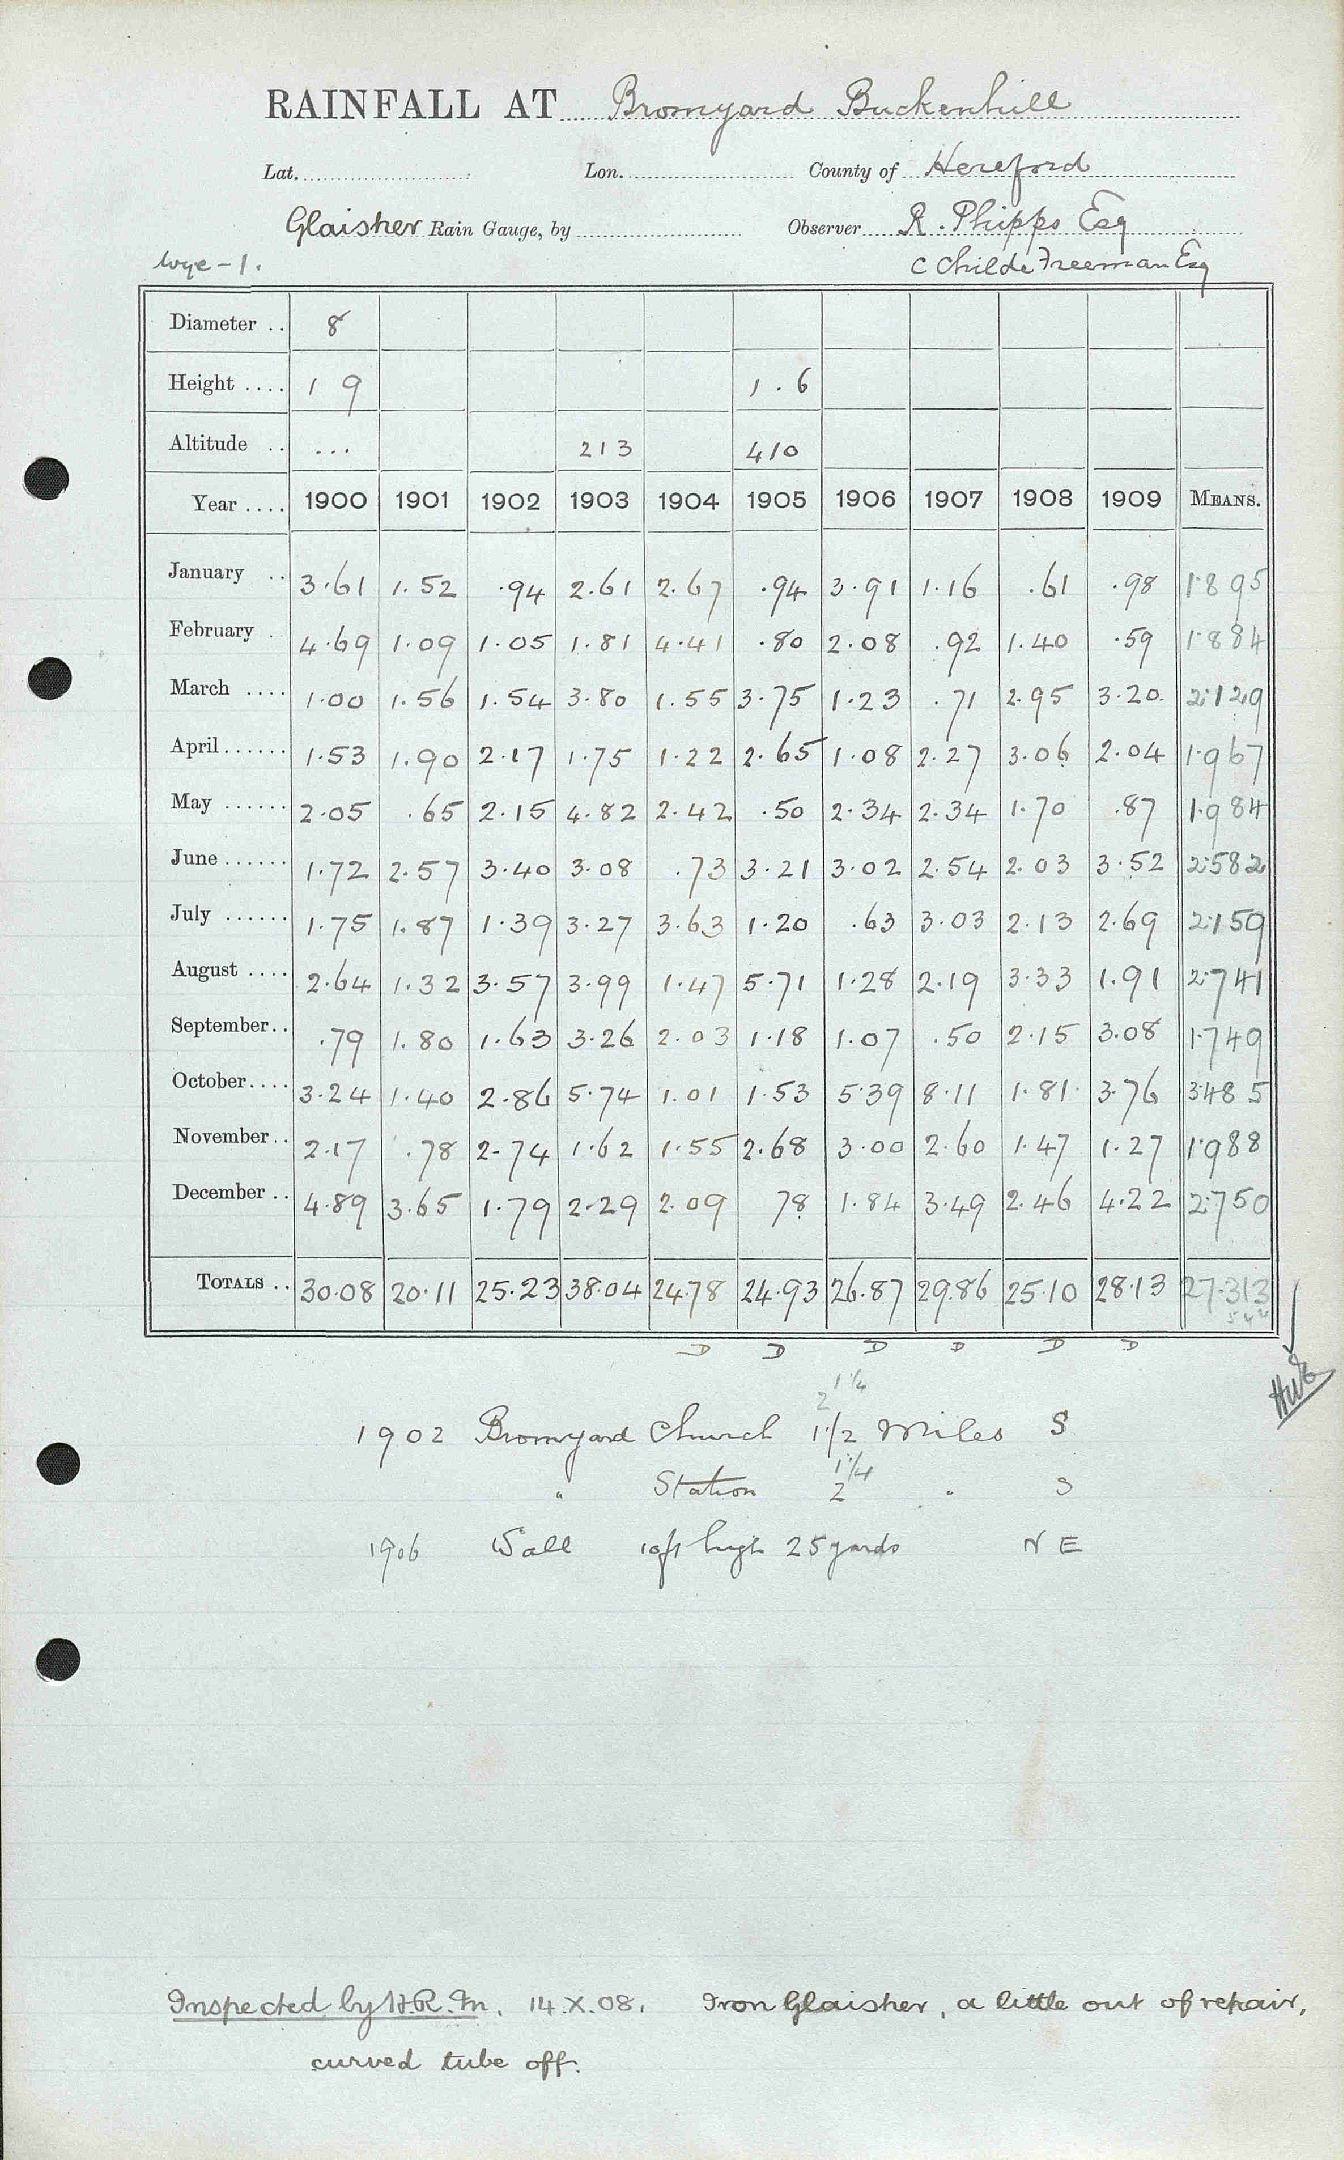 RAINFALL AT Bromyard Buckenhill
Lat. Lon. County of Hereford
Glaisher Rain Gauge, by Observer R. Phipps Esq
Wye - 1. C Childe Freeman Esq
Diameter .. 8
Height .... 1 9 1.6
Altitude .. ... 213 410
Year .... 1900 1901 1902 1903 1904 1905 1906 1907 1908 1909 MEANS.
January .. 3.61 1.52 .94 2.61 2.67 .94 3.91 1.16 .61 .98 1.895
February . 4.69 1.09 1.05 1.81 4.41 .80 2.08 .92 1.40 .59 1.884
March .... 1.00 1.56 1.54 3.80 1.55 3.75 1.23 .71 2.95 3.20 2.129
April...... 1.53 1.90 2.17 1.75 1.22 2.65 1.08 2.27 3.06 2.04 1.967
May ...... 2.05 .65 2.15 4.82 2.42 .50 2.34 2.34 1.70 .87 1.984
June ...... 1.72 2.57 3.40 3.08 .73 3.21 3.02 2.54 2.03 3.52 2.582
July ...... 1.75 1.87 1.39 3.27 3.63 1.20 .63 3.03 2.13 2.69 2.159
August .... 2.64 1.32 3.57 3.99 1.47 5.71 1.28 2.19 3.33 1.91 2.741
September.. .79 1.80 1.63 3.26 2.03 1.18 1.07 .50 2.15 3.08 1.749
October.... 3.24 1.40 2.86 5.74 1.01 1.53 5.39 8.11 1.81 3.76 3.485
November.. 2.17 .78 2.74 1.62 1.55 2.68 3.00 2.60 1.47 1.27 1.988
December .. 4.89 3.65 1.79 2.29 2.09 78 1.84 3.49 2.46 4.22 2.750
TOTALS .. 30.08 20.11 25.23 38.04 24.78 24.93 26.87 29.86 25.10 28.13 27.313
D D D D D D
1 1/4
2
1902 Bromyard Church 1 1/2 Miles S
1 1/4
" Station 2 " S
1906 Wall 10ft high 25 yards N E
Inspected by H.R.M. 14.X.08. Iron Glaisher, a little out of repair,
curved tube off.